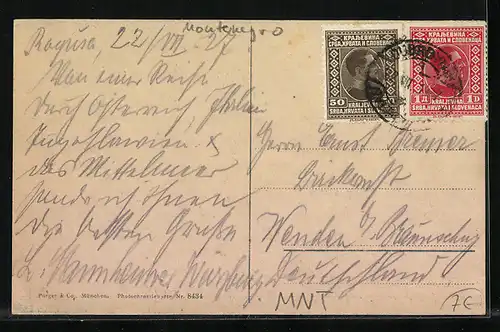 Montenegro
Ragusa 22/VII 27
Von einer Reise
durch Österreich Italien
Jugoslawien
das Mittelmeer
sende ich Ihnen
die besten Grüße
Würzburg
КРАЉЕВИНА
СРБА, ХРВАТА И СЛОВЕНАЦА
50
KRALJEVINA
SRBA, HRVATA I SLOVENACA
КРАЉЕВИНА
СРБА, ХРВАТА И СЛОВЕНАЦА
1Д 1D
KRALJEVINA
SRBA, HRVATA I SLOVENACA
Herrn Ernst
Wenden
Deutschland
MNT
7€
Purger & Co., München. Photochromiekarte Nr. 8434